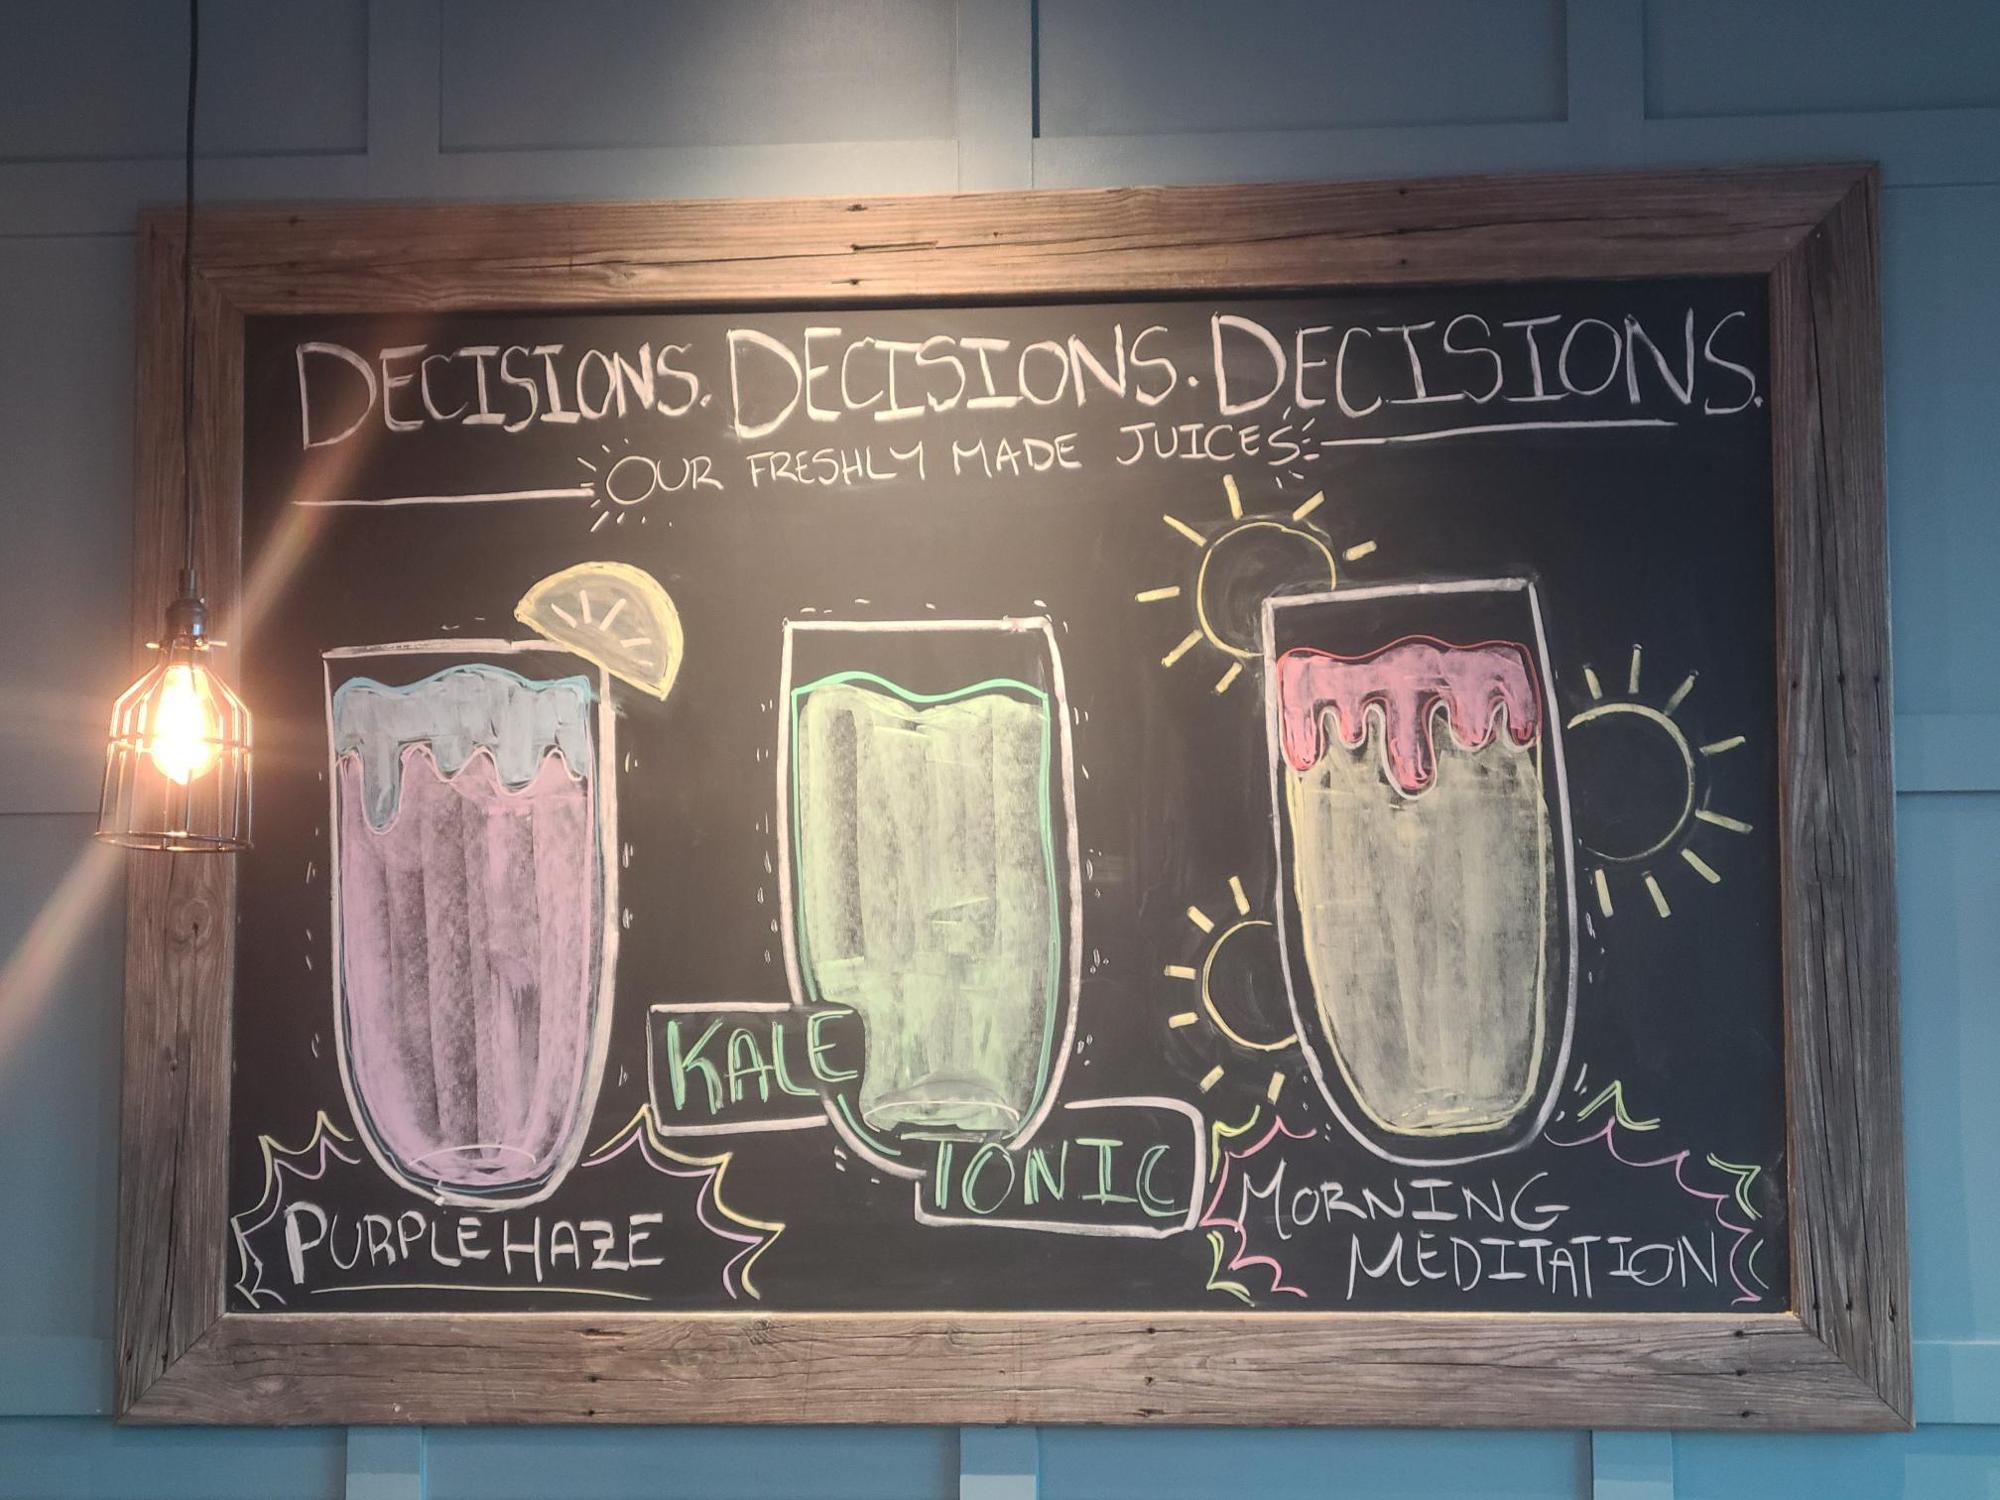 DECISIONS. DECISIONS. DECISIONS.
OUR FRESHLY MADE JUICES
PURPLE HAZE
KALE
TONIC
MORNING
MEDITATION